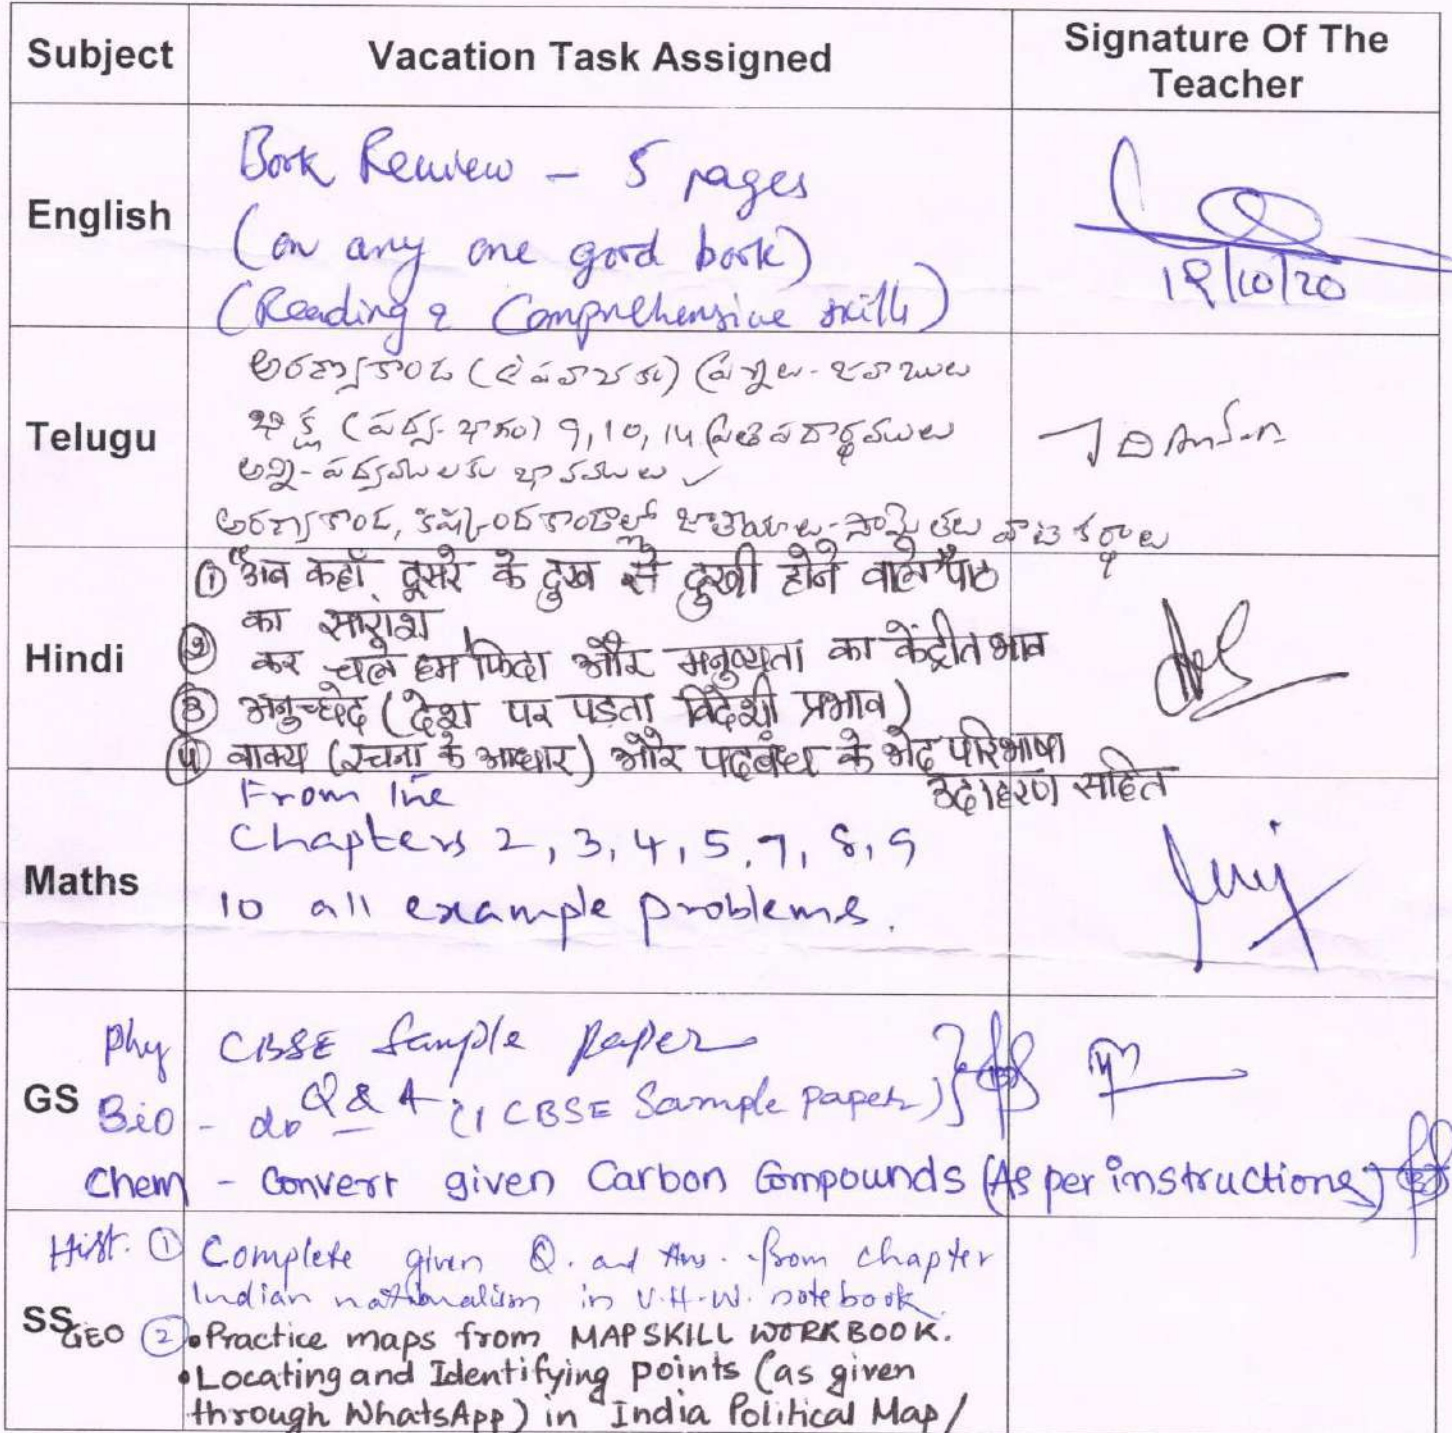 Subject Vacation Task Assigned Signature Of The Teacher
English
Book Review - 5 pages
(on any one good book)
(Reading & Comprehensive skills)
18/10/20
Telugu
అరణ్యకాండ (ఉపవాచకం) ప్రశ్నలు - జవాబులు
భిక్ష (పద్య-భాగం) 9, 10, 14 ప్రతిపదార్థములు
అన్ని - పద్యములకు భావములు ✓
అరణ్యకాండ, కిష్కిందకాండల్లో జాతీయాలు - సామెతలు వాటి కర్థాలు
Hindi
① "अब कहाँ दूसरे के दुख से दुखी होने वाले" पाठ
का सारांश
② कर चले हम फिदा और मनुष्यता का केंद्रीत भाव
③ अनुच्छेद (देश पर पड़ता विदेशी प्रभाव)
④ वाक्य (रचना के आधार) और पदबंध के भेद परिभाषा
उदाहरण सहित
Maths
From the
Chapters 2, 3, 4, 5, 7, 8, 9
10 all example problems.
GS
Phy CBSE Sample paper
Bio - do Q & A (1 CBSE Sample paper)
Chem - Convert given Carbon Compounds (As per instructions)
SS
Hist. ① Complete given Q. and Ans. from chapter
Indian nationalism in V.H.W. notebook.
GEO ② • Practice maps from MAPSKILL WORKBOOK.
• Locating and Identifying points (as given
through WhatsApp) in India Political Map/